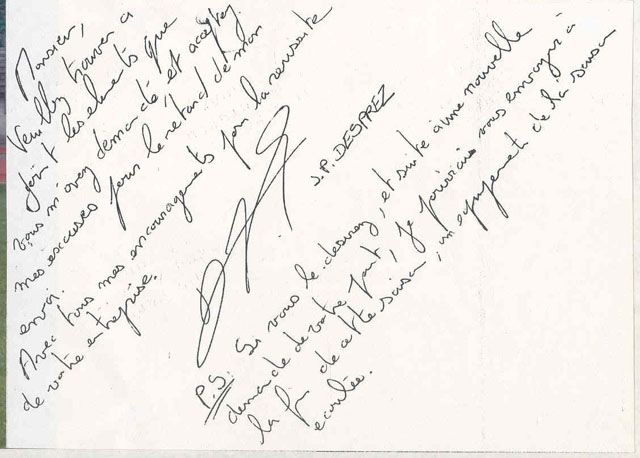 Monsieur,
Veuillez trouver ci
joint les elements que
vous m'avez demandé et acceptez
mes excuses pour le retard de mon
envoi.
Avec tous mes encouragements pour la reussite
de votre entreprise.
J.P. DESPREZ
P.S. Si vous le desirez, et suite à une nouvelle
demande de votre part, je pourrais vous envoyer à
la fin de cette saison, un equipement de la saison
ecoulée.